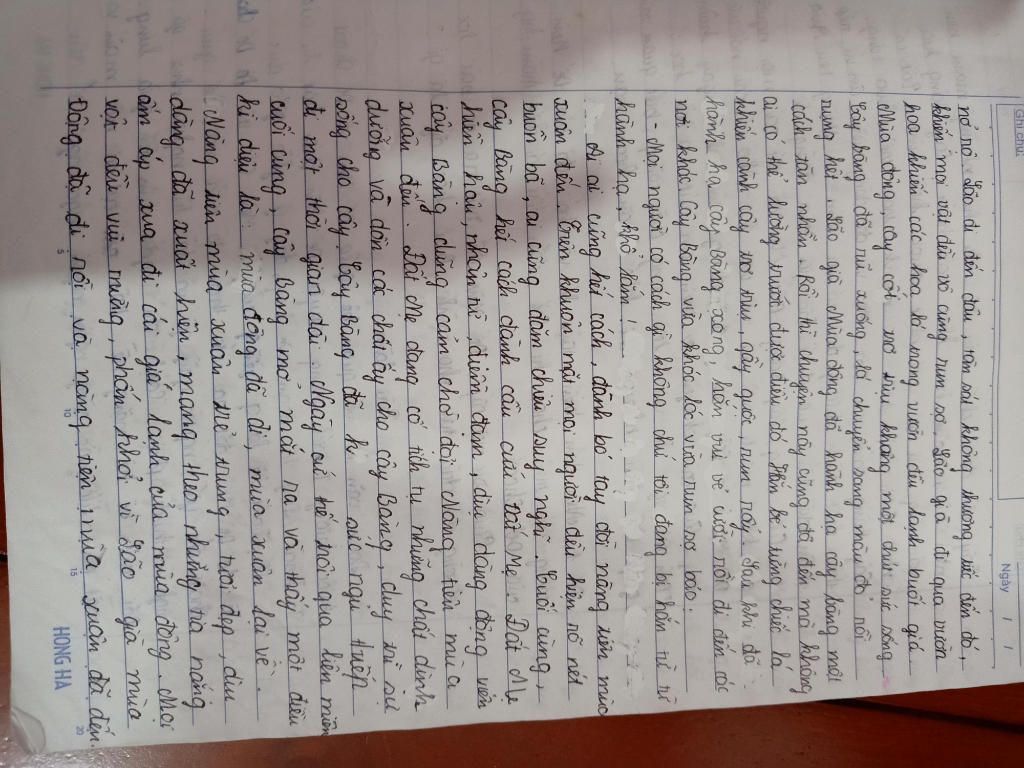 Ghi chú
Ngày / /
nó nó Lão đi đến đâu, tàn sát không thương tiếc đến đó,
khiến mọi vật đều vô cùng run sợ. Lão già đi qua vườn
hoa khiến các hoa lá trong vườn đều lạnh buốt giá
Mùa đông, cây cối xơ xịu không một chút sức sống.
Cây bàng đã rũ xuống, lá chuyển sang màu đỏ rồi
rụng hết. Lão già Mùa đông đã hành hạ cây bàng một
cách tàn nhẫn. Rồi thì chuyện này cũng đã đến mà không
ai có thể lường trước được điều đó. Hắn bẻ từng chiếc lá
khiến cành cây xơ xác, gầy guộc, run rẩy. Sau khi đã
hành hạ cây bàng xong, hắn vui vẻ cười rồi đi đến các
nơi khác. Cây Bàng vừa khóc lóc vừa run sợ bảo:
- Mọi người có cách gì không chứ tôi đang bị hắn ta
hành hạ, khổ lắm!
Ai ai cũng hết cách, đành bó tay đợi nàng tiên mùa
xuân đến. Trên khuôn mặt mọi người đều hiện rõ nét
buồn bã, ai cũng đăm chiêu suy nghĩ. Cuối cùng,
cây Bàng hết cách đành cầu cứu Đất Mẹ. Đất Mẹ
hiền hậu, nhân từ, điềm đạm, dịu dàng động viên
cây Bàng dũng cảm chờ đợi Nàng tiên mùa
xuân đến. Đất Mẹ đang cố tích tụ những chất dinh
dưỡng và dồn cả chất ấy cho cây Bàng, duy trì sự
sống cho cây. Cây Bàng đã kị sức ngủ thiếp
đi một thời gian dài. Ngày cứ thế trôi qua liên miên
cuối cùng, cây bàng mở mắt ra và thấy một điều
kì diệu là: mùa đông đã đi, mùa xuân lại về.
Nàng tiên mùa xuân trẻ trung, tươi đẹp, dịu
dàng đã xuất hiện, mang theo những tia nắng
ấm áp xua đi cái giá lạnh của mùa đông. Mọi
vật đều vui mừng, phấn khởi vì Lão già mùa
Đông đã đi rồi và nàng tiên mùa xuân đã đến.
5 10 15 20
HONG HA